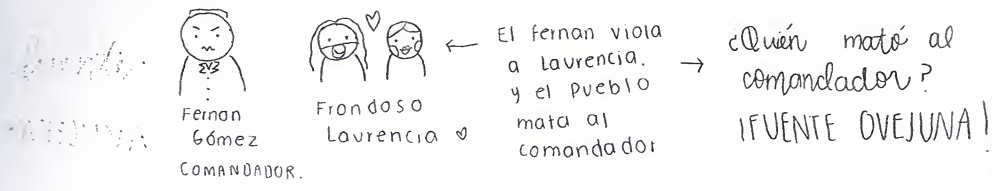 Fernan
Gómez
COMANDADOR.
Frondoso
Laurencia
El fernan viola
a Laurencia.
y el Pueblo
mata al
comandador
¿Quién mató al
comandador?
¡FUENTE OVEJUNA!